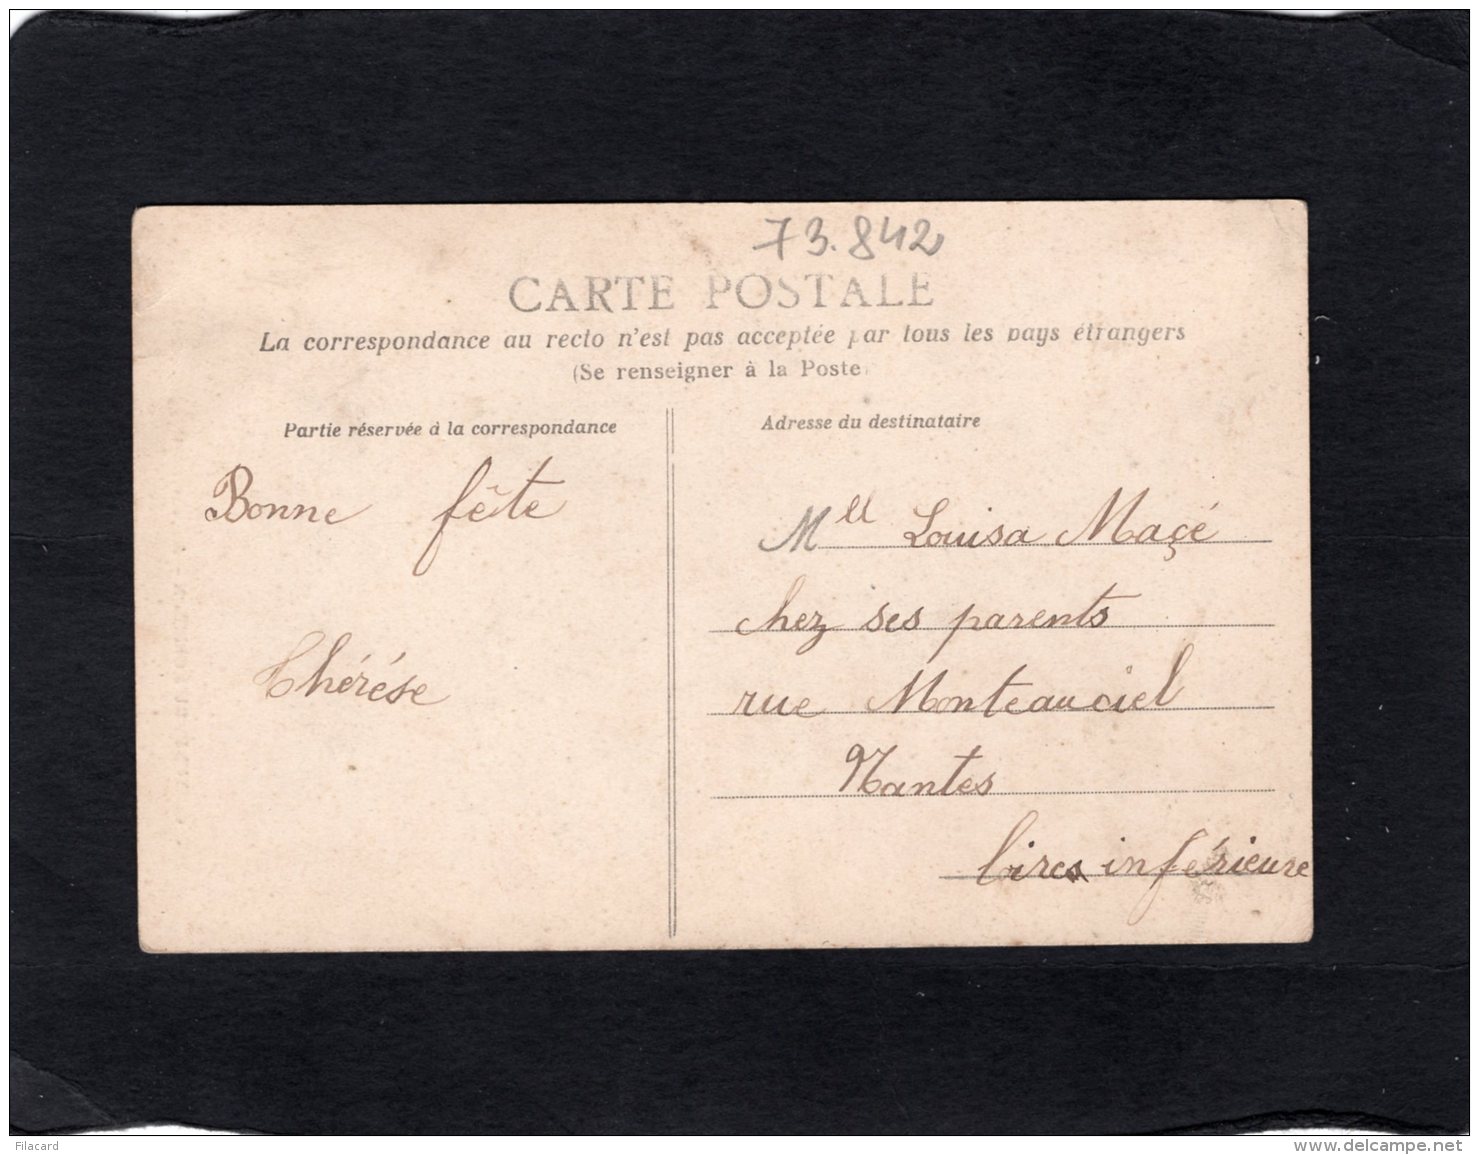 73.842
CARTE POSTALE
La correspondance au recto n'est pas acceptée par tous les pays étrangers
(Se renseigner à la Poste)
Partie réservée à la correspondance
Bonne fête
Thérése
Adresse du destinataire
Mll Louisa Maçé
chez ses parents
rue Monteauciel
Nantes
inférieure
Filacard
www.delcampe.net